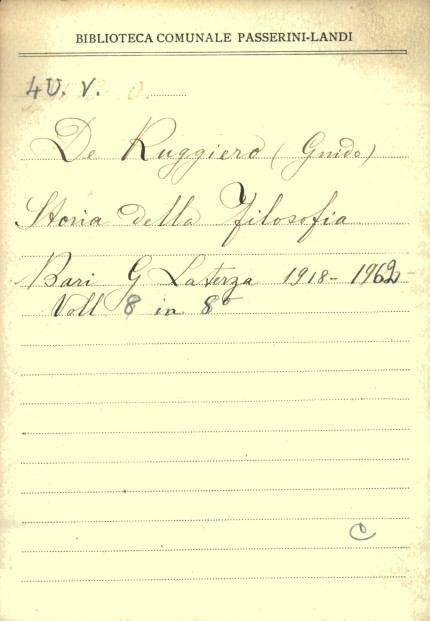 BIBLIOTECA COMUNALE PASSERINI-LANDI
4 U. V.
De Ruggiero (Guido)
Storia della Filosofia
Bari G Laterza 1918-1962
Voll 8 in 8°
C